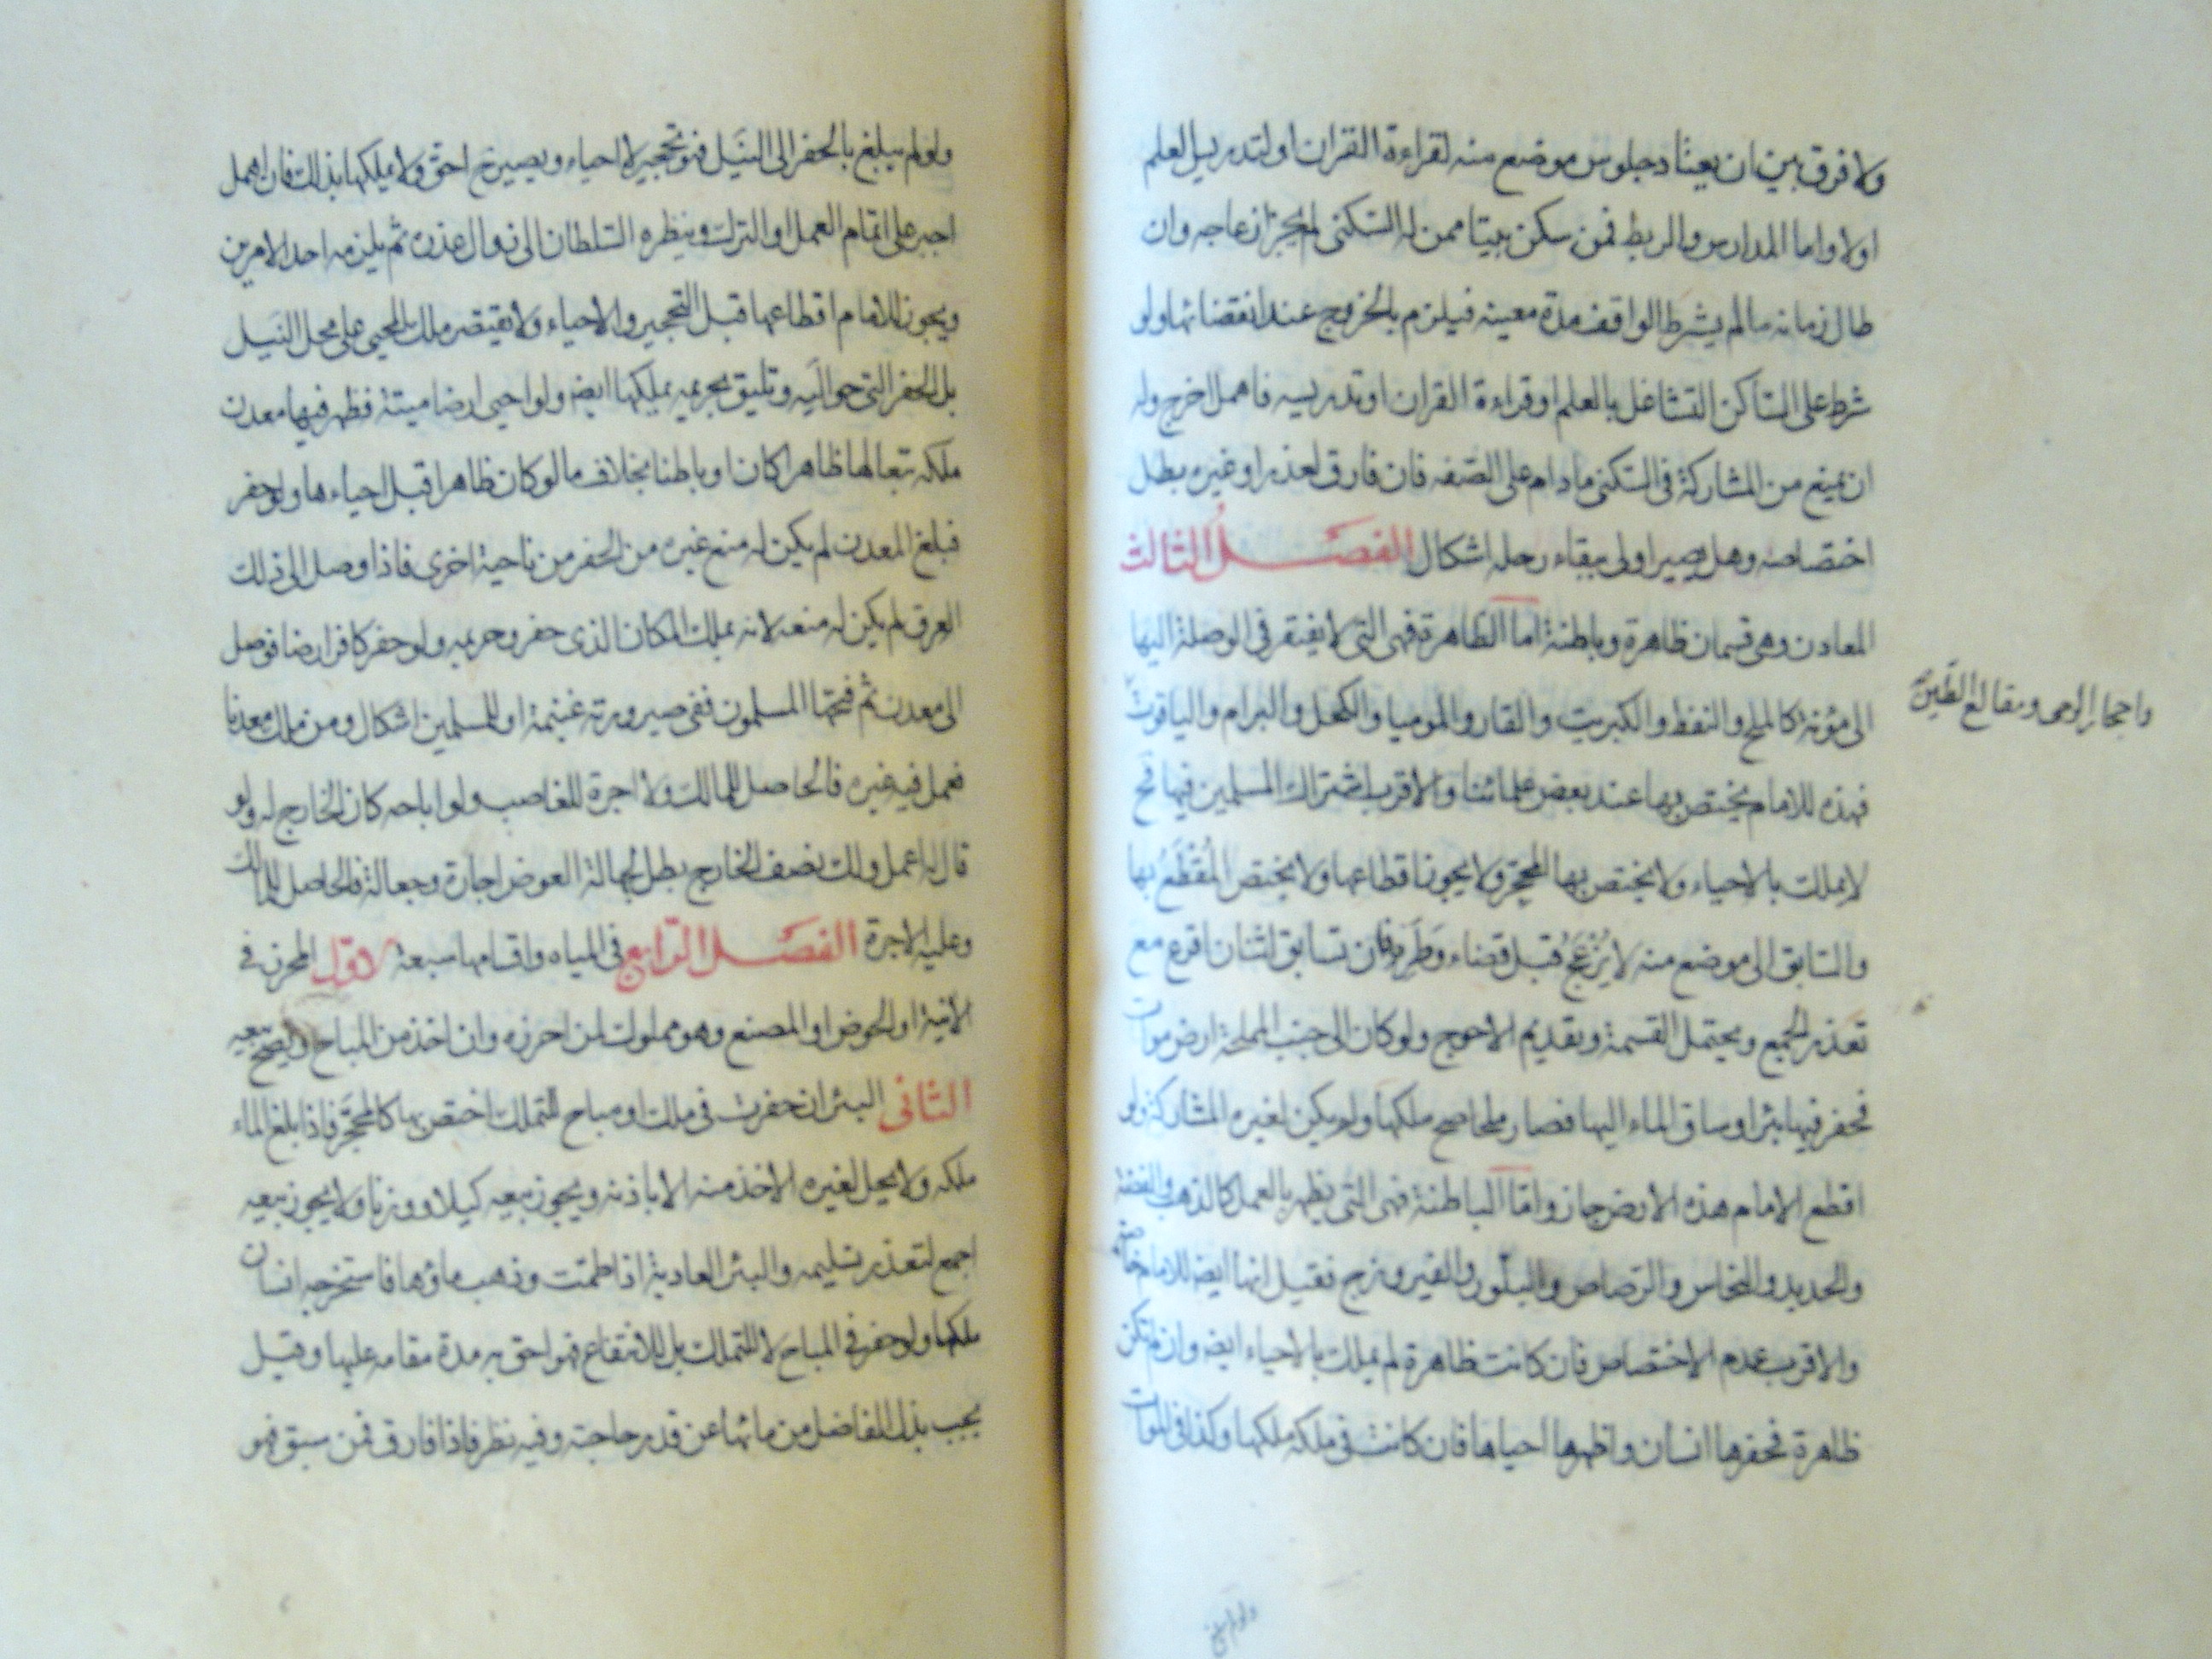 ولا فرق بين ان يعتاد جلوس موضع منه لقراءة القران او لتدريس العلم
اولا واما المدارس والربط فمن سكن بيتا ممن له السكنى لم يجز ازعاجه وان
طال زمانه ما لم يشرط الواقف مدة معينه فيلزم بالخروج عند انقضائها ولو
شرط على الساكن التشاغل بالعلم او قراءة القران او تدريسه فاهمل اخرج وله
ان يمنع من المشاركة في السكنى ما دام على الصفه فان فارق لعذر او غيره بطل
اختصاصه وهل يصير اولى ببقاء رحله اشكال الفصل الثالث
المعادن وهى قسمان ظاهرة وباطنة اما الظاهرة فهى التى لا يفتقر في الوصلة اليها
الى مؤنة كالملح والنفط والكبريت والقار والموميا والكحل والبرام والياقوت
واحجار الرحى ومقالع الطين
فهذه للامام يختص بها عند بعض علمائنا والاقرب اشتراك المسلمين فيها فح
لا يملك بالاحياء ولا يختص بها المحجر ولا يجوز اقطاعها ولا يختص المقطع بها
والسابق الى موضع منه لا يزعج قبل قضاء وطره فان تسابق اثنان اقرع مع
تعذر الجمع ويحتمل القسمة وتقديم الاحوج ولو كان الى جنب المملحة ارض موات
فحفر فيها بئرا وساق الماء اليها فصار ملحا صح ملكها ولم يكن لغيره المشاركة ولو
اقطع الامام هذه الارض جاز واما الباطنة فهى التى يظهر بالعمل كالذهب والفضة
والحديد والنحاس والرصاص والبلور والفيروزج فقيل انها ايضا للامام خاصة
والاقرب عدم الاختصاص فان كانت ظاهرة لم يملك بالاحياء ايضا وان لم تكن
ظاهرة فحفرها انسان واظهرها احياها فان كانت في ملكه ملكها وكذا في الموات
ولو لم يبلغ
ولو لم يبلغ بالحفر الى النيل فهو تحجير لا احياء ويصير ح احق ولا يملكها بذلك فان اهمل
اجبر على اتمام العمل او الترك وينظره السلطان الى زوال عذره ثم يلزمه احد الامرين
ويجوز للامام اقطاعها قبل التحجير والاحياء ولا يقتصر ملك المحيى على محل النيل
بل الحفر التى حواليه وتليق بحريمه يملكها ايضا ولو احيى ارضا ميتة فظهر فيها معدن
ملكه تبعا لها ظاهرا كان او باطنا بخلاف ما لو كان ظاهرا قبل احياءها ولو حفر
فبلغ المعدن لم يكن له منع غيره من الحفر من ناحية اخرى فاذا وصل الى ذلك
العرق لم يكن له منعه لانه يملك المكان الذى حفر وحريمه ولو حفر كافر ارضا فوصل
الى معدن ثم فتحها المسلمون ففى صيرورته غنيمة او للمسلمين اشكال ومن ملك معدنا
فعمل فيه غيره فالحاصل للمالك ولا اجرة للغاصب ولو اباحه كان الخارج له ولو
قال له اعمل ولك نصف الخارج بطل لجهالة العوض اجارة وجعالة فالحاصل للمالك
وعليه الاجرة الفصل الرابع في المياه واقسامها سبعة الاول المحرز في
الانية او الحوض او المصنع وهو مملوك لمن احرزه وان اخذ من المباح ويصح بيعه
الثانى البئر ان حفرت في ملك او مباح للتملك اختص بها كالمحجر فاذا بلغ الماء
ملكه ولا يحل لغيره الاخذ منه الا باذنه ويجوز بيعه كيلا ووزنا ولا يجوز بيعه
اجمع لتعذر تسليمه والبئر العادية اذا طمت وذهب ماؤها فاستخرجه انسان
ملكها ولو حفر في المباح لا للتملك بل للانتفاع فهو احق به مدة مقامه عليها وقيل
يجب بذل الفاضل من مائها عن قدر حاجته وفيه نظر فاذا فارق فمن سبق فهو